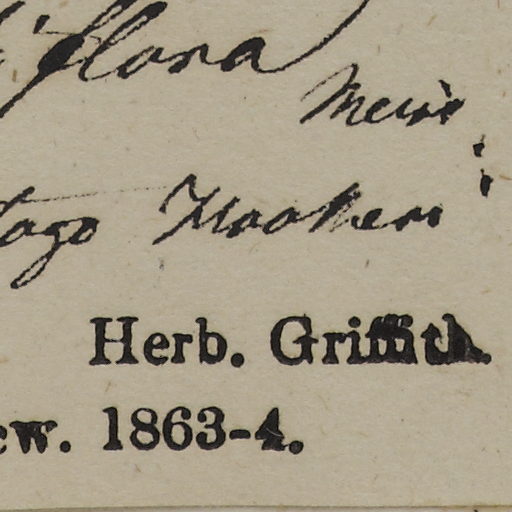 flora
Meisn
tago Hookeri
Herb. Griffith.
ew. 1863-4.